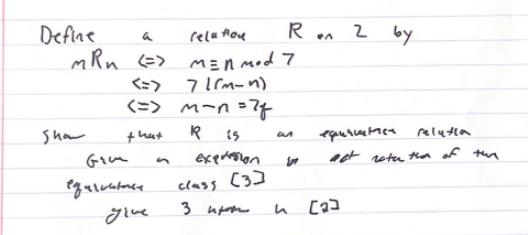 Define a relation R on 2 by
mRn <=> m ≡ n mod 7
<=> 7 | (m-n)
<=> m-n = 7q
Show that R is an equivalence relation
Given an expression in set notation of the
equivalence class [3]
give 3 in [2]